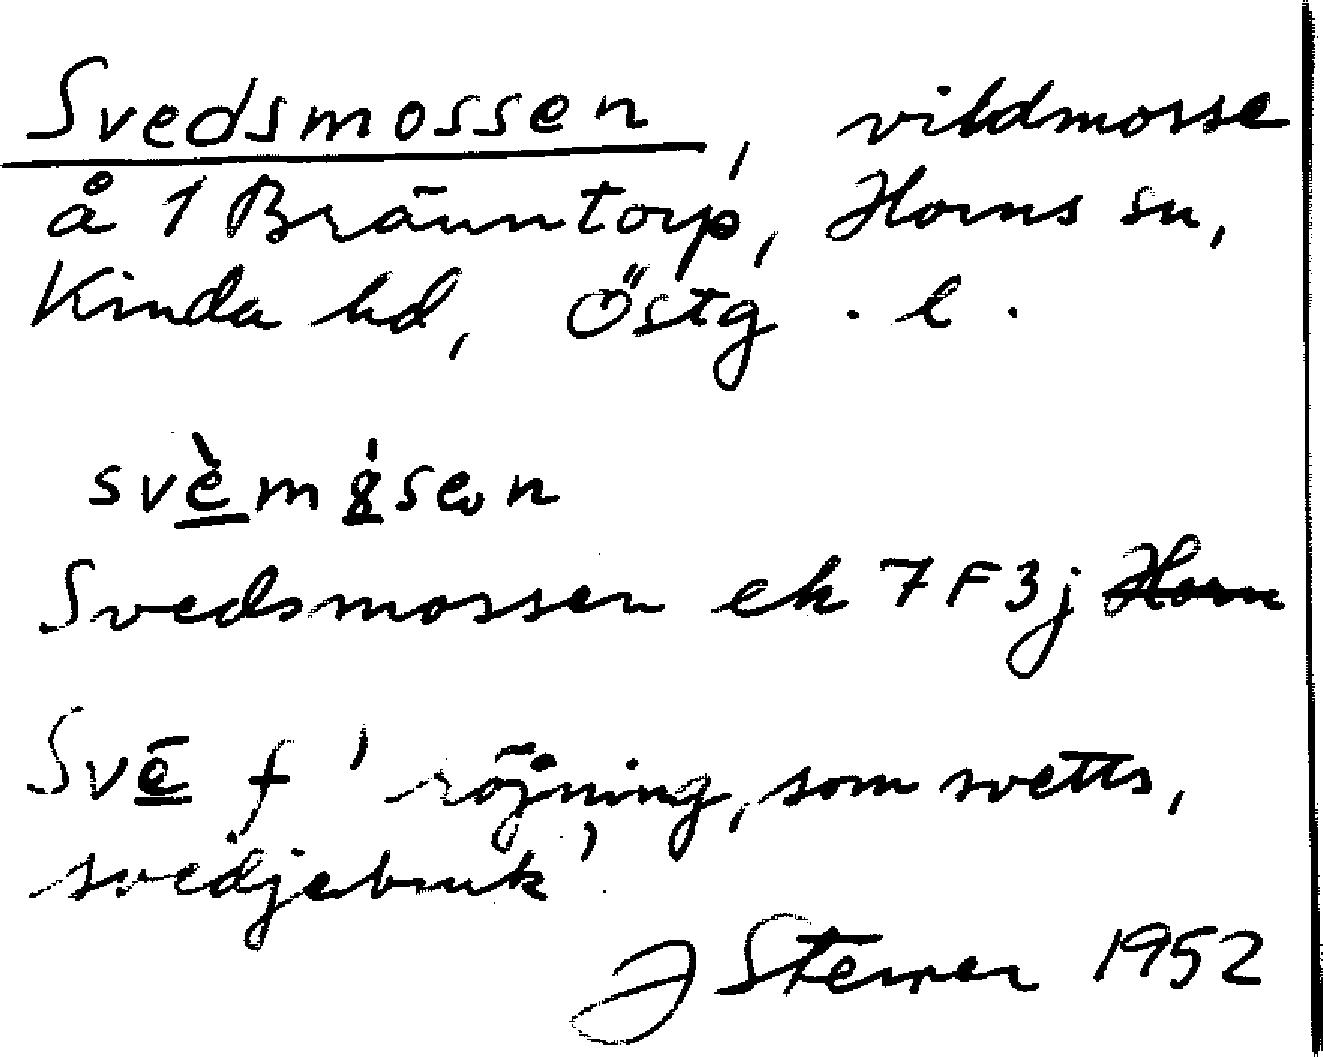 Svedsmossen, vildmosse
å 1 Bräuntorp, Horns sn,
Kinda hd, Östg. l.
Svedsmossen ek 7F3j Horn
Svē f 'röjning, som svetts,
svedjebruk'
J 1952